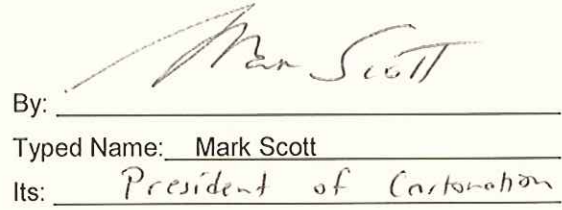 By: Mark Scott
Typed Name: Mark Scott
Its: President of Cartonation